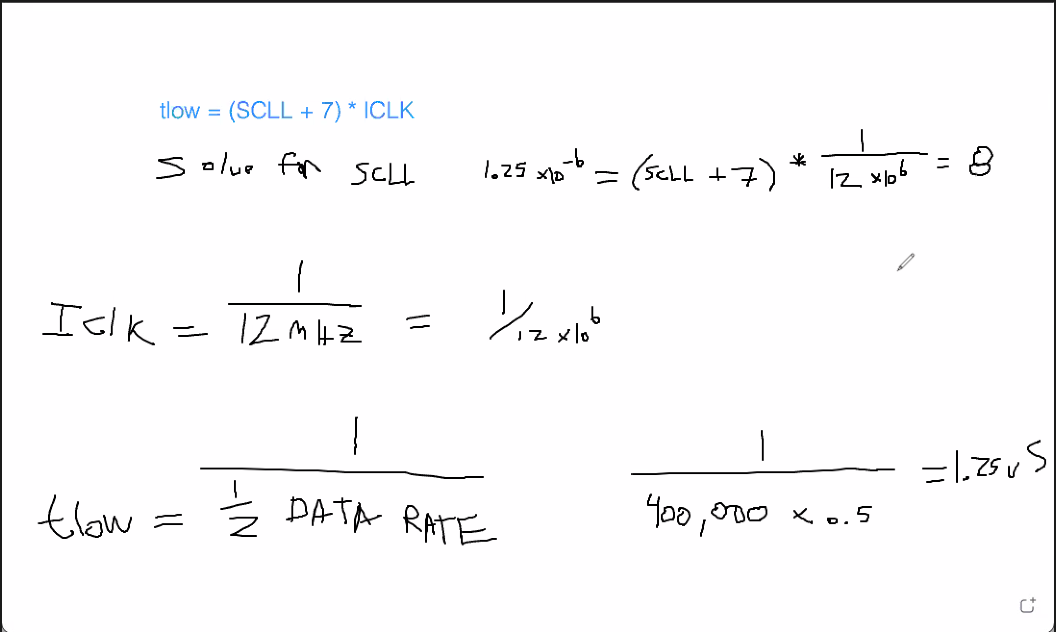 tlow = (SCLL + 7) * ICLK
Solve for SCLL 1.25 x10^-6 = (SCLL + 7) * 1/12 x10^6 = 8
Iclk = 1/12 MHz = 1/12 x10^6
tlow = 1/(1/2 DATA RATE) 1/(400,000 x 0.5) = 1.25 u S